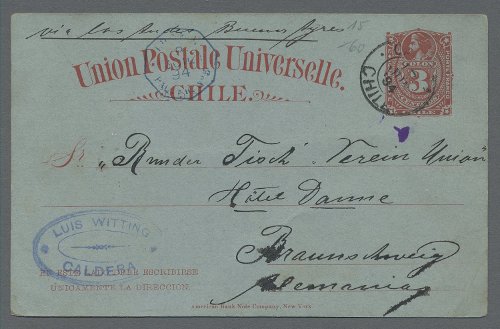 via Los Andes Buenos Ayres
15
60
94
Union Postale Universelle.
CHILE.
COLON
3
CHILE
94
Sr. „Runder Tisch" Verein Union"
Hôtel Danne
Braunschweig
Alemania
LUIS WITTING
CALDERA
EN ESTE LADO DEBE ESCRIBIRSE
ÚNICAMENTE LA DIRECCION.
American Bank Note Company, New York